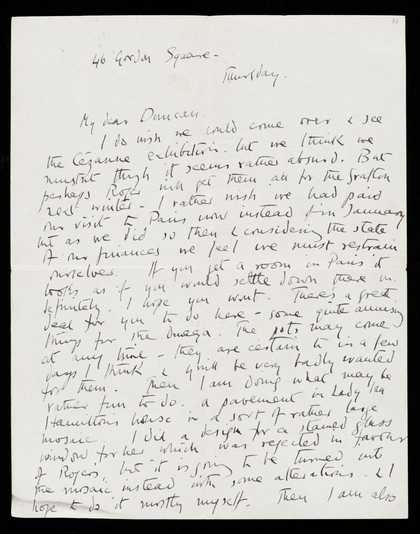 46 Gordon Square -
Thursday.
My dear Duncan.
I do wish we could come over & see
the Cézanne exhibition but we think we
mustn't though it seems rather absurd. But
perhaps Roger will get them all for the Grafton
next winter - I rather wish we had paid
our visit to Paris now instead of in January
but as we did so then & considering the state
of our finances we feel we must restrain
ourselves. If you get a room in Paris it
looks as if you would settle down there in-
definitely. I hope you wont. There's a great
deal for you to do here - some quite amusing
things for the Omega. The pots may come
at any time - they are certain to in a few
days I think & you'll be very badly wanted
for them. Then I am doing what may be
rather fun to do. a pavement in Lady Ian
Hamiltons house in a sort of rather large
mosaic. I did a design for a stained glass
window for her which was rejected in favour
of Rogers, but it is going to be turned into
the mosaic instead with some alterations. & I
hope to do it mostly myself. Then I am also